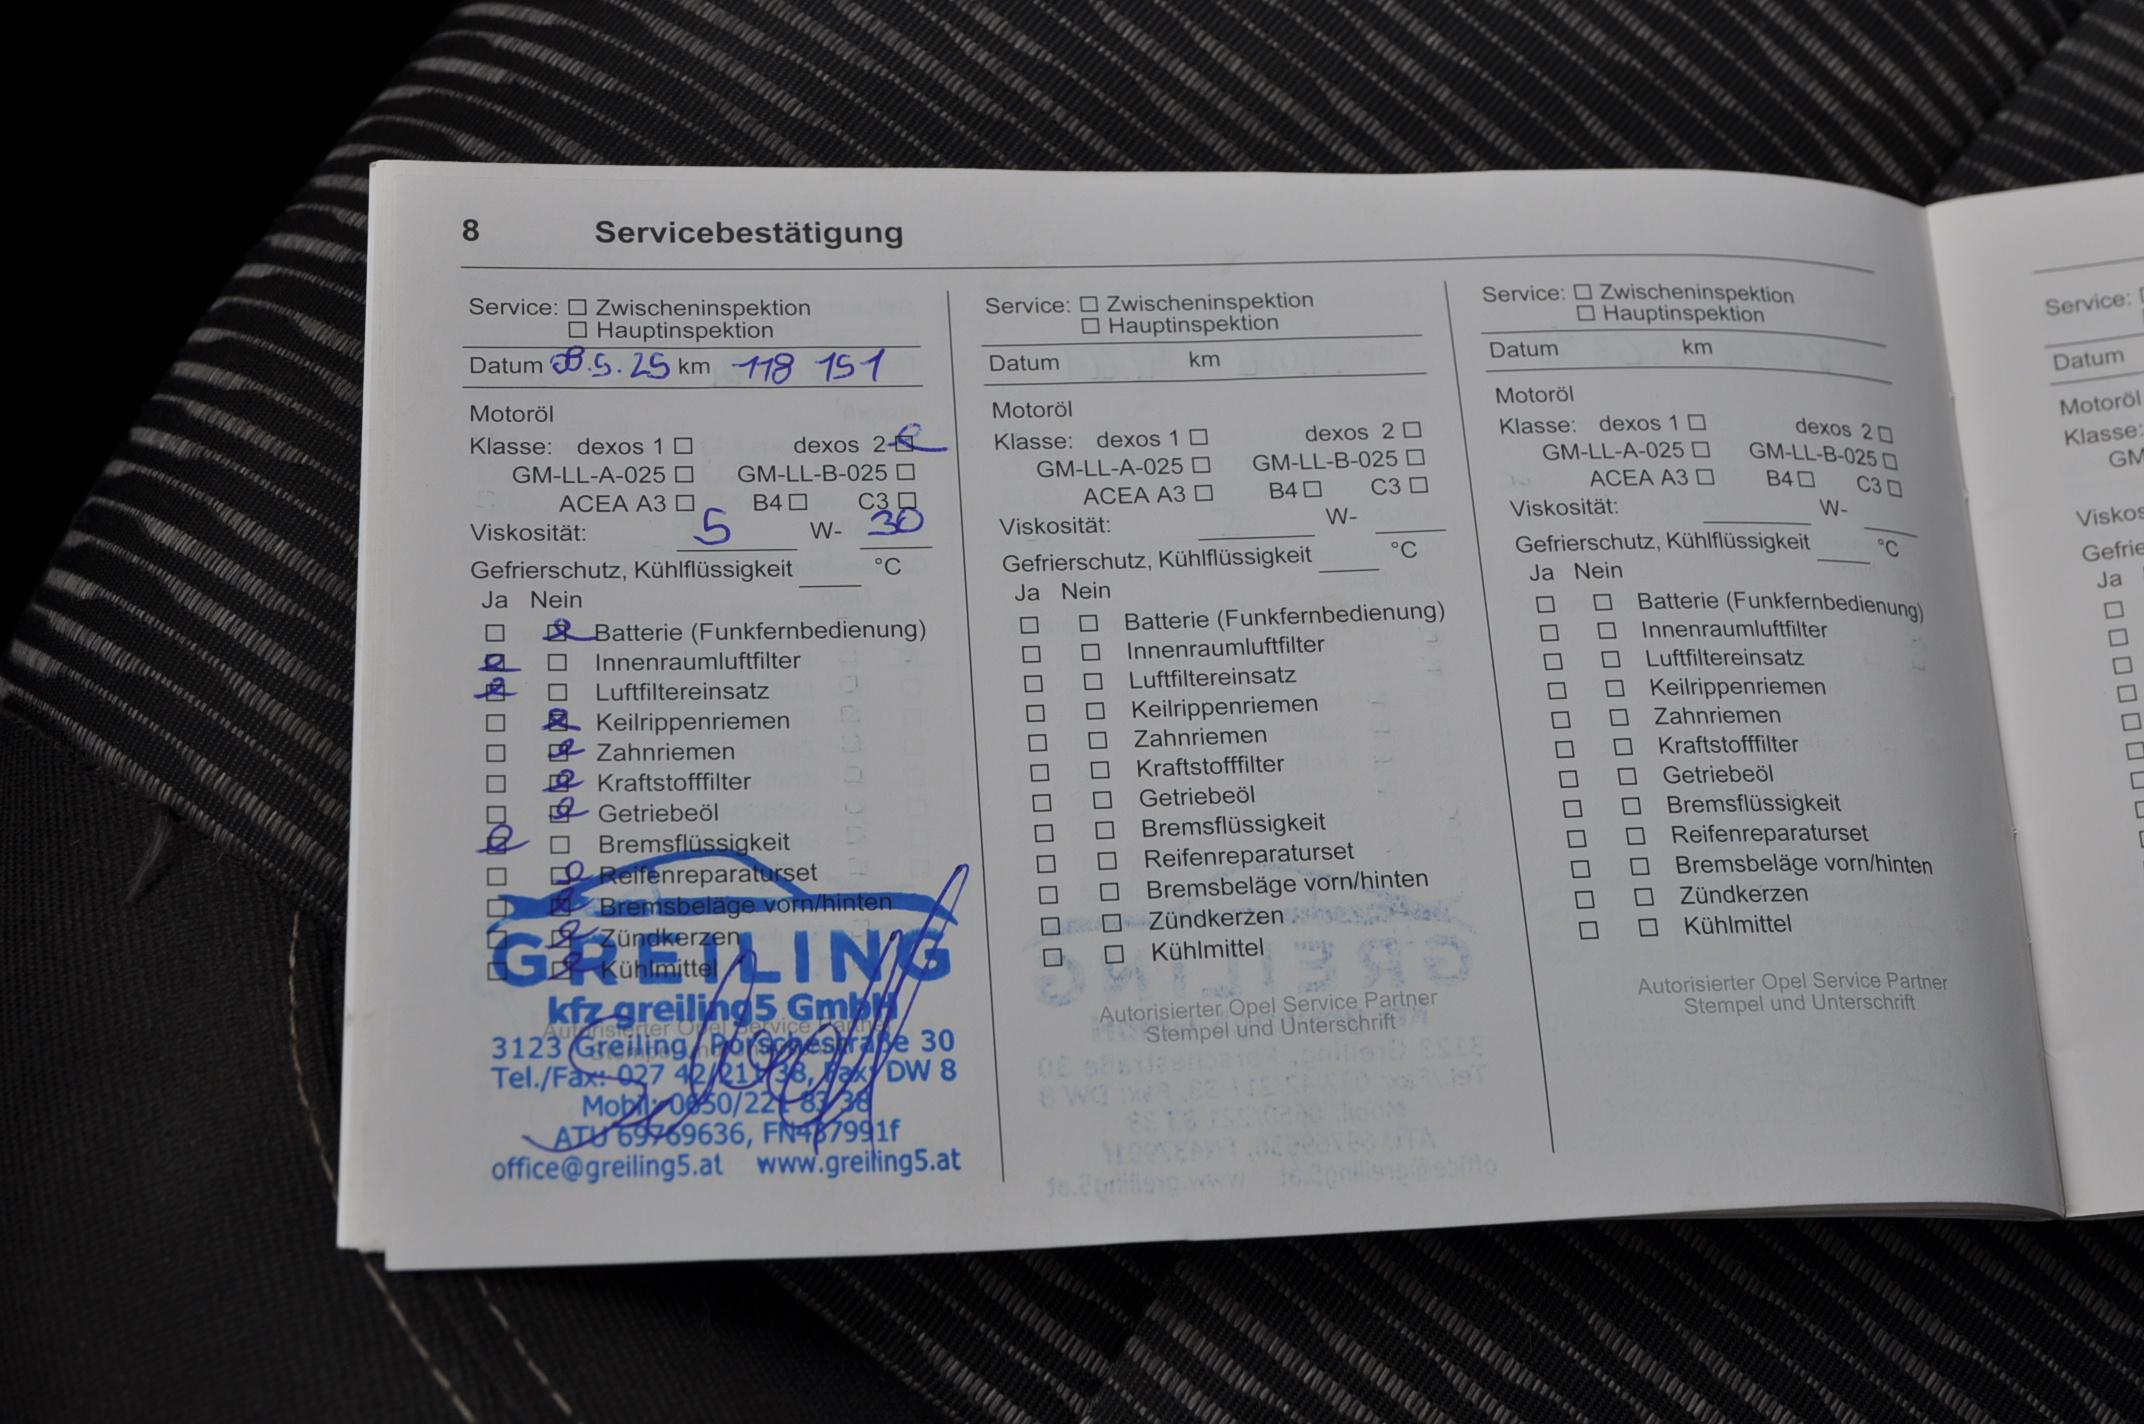 8 Servicebestätigung
Service: ☐ Zwischeninspektion
☐ Hauptinspektion
Datum 08.5.25 km 118 151
Motoröl
Klasse: dexos 1 ☐ dexos 2 ☒
GM-LL-A-025 ☐ GM-LL-B-025 ☐
ACEA A3 ☐ B4 ☐ C3 ☐
Viskosität: 5 W- 30
Gefrierschutz, Kühlflüssigkeit ____ °C
Ja Nein
☐ ☒ Batterie (Funkfernbedienung)
☒ ☐ Innenraumluftfilter
☒ ☐ Luftfiltereinsatz
☐ ☒ Keilrippenriemen
☐ ☒ Zahnriemen
☐ ☒ Kraftstofffilter
☐ ☒ Getriebeöl
☒ ☐ Bremsflüssigkeit
☐ ☒ Reifenreparaturset
☐ ☒ Bremsbeläge vorn/hinten
☐ ☒ Zündkerzen
☐ ☒ Kühlmittel
GREILING
kfz greiling5 GmbH
Autorisierter Opel Service Partner
3123 Greiling, Porschestraße 30
Tel./Fax: 027 42/211 38, Fax: DW 8
Mobil: 0650/221 83 38
ATU 69769636, FN437991f
office@greiling5.at www.greiling5.at
Service: ☐ Zwischeninspektion
☐ Hauptinspektion
Datum km
Motoröl
Klasse: dexos 1 ☐ dexos 2 ☐
GM-LL-A-025 ☐ GM-LL-B-025 ☐
ACEA A3 ☐ B4 ☐ C3 ☐
Viskosität: ____ W- ____
Gefrierschutz, Kühlflüssigkeit ____ °C
Ja Nein
☐ ☐ Batterie (Funkfernbedienung)
☐ ☐ Innenraumluftfilter
☐ ☐ Luftfiltereinsatz
☐ ☐ Keilrippenriemen
☐ ☐ Zahnriemen
☐ ☐ Kraftstofffilter
☐ ☐ Getriebeöl
☐ ☐ Bremsflüssigkeit
☐ ☐ Reifenreparaturset
☐ ☐ Bremsbeläge vorn/hinten
☐ ☐ Zündkerzen
☐ ☐ Kühlmittel
Autorisierter Opel Service Partner
Stempel und Unterschrift
Service: ☐ Zwischeninspektion
☐ Hauptinspektion
Datum km
Motoröl
Klasse: dexos 1 ☐ dexos 2 ☐
GM-LL-A-025 ☐ GM-LL-B-025 ☐
ACEA A3 ☐ B4 ☐ C3 ☐
Viskosität: ____ W- ____
Gefrierschutz, Kühlflüssigkeit ____ °C
Ja Nein
☐ ☐ Batterie (Funkfernbedienung)
☐ ☐ Innenraumluftfilter
☐ ☐ Luftfiltereinsatz
☐ ☐ Keilrippenriemen
☐ ☐ Zahnriemen
☐ ☐ Kraftstofffilter
☐ ☐ Getriebeöl
☐ ☐ Bremsflüssigkeit
☐ ☐ Reifenreparaturset
☐ ☐ Bremsbeläge vorn/hinten
☐ ☐ Zündkerzen
☐ ☐ Kühlmittel
Autorisierter Opel Service Partner
Stempel und Unterschrift
Service:
Datum
Motoröl
Klasse:
GM
Ja